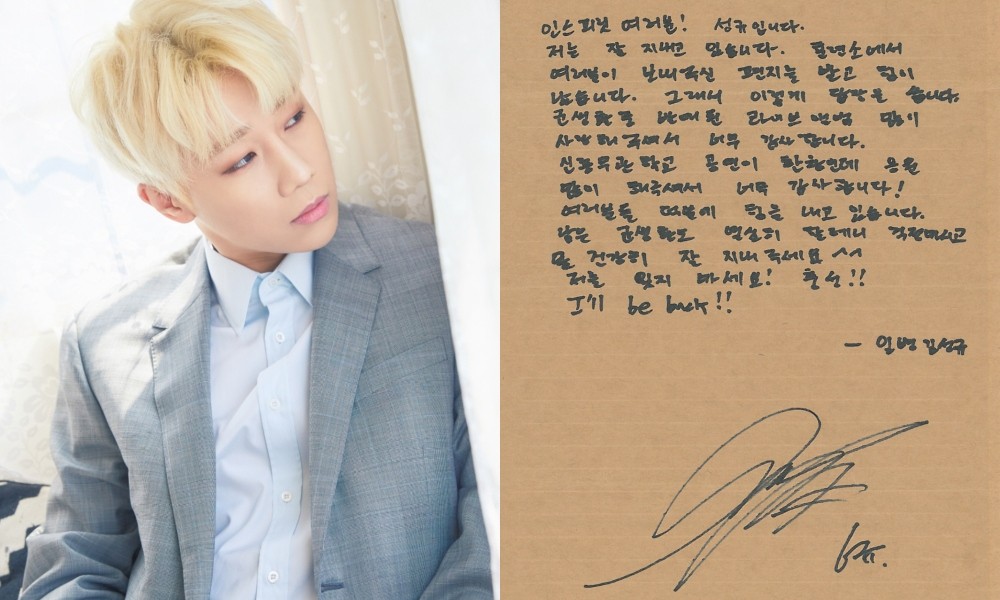 인스피릿 여러분! 성규입니다.
저는 잘 지내고 있습니다. 훈련소에서
여러분이 보내주신 편지를 받고 힘이
났습니다. 그래서 이렇게 답장을 씁니다.
군생활로 남겨둔 라이브 앨범 많이
사랑해주셔서 너무 감사합니다.
신흥무관학교 공연이 한창인데 응원
많이 해주셔서 너무 감사합니다!
여러분들 덕분에 힘을 내고 있습니다.
남은 군생활도 열심히 할테니 걱정마시고
몸 건강히 잘 지내주세요 ^^
저를 잊지 마세요! 충성!!
I'll be back!!
- 일병 김성규